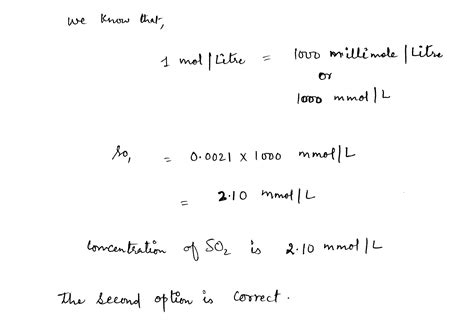 We know that,
1 mol/Litre = 1000 millimole/Litre
or
1000 mmol/L
So, = 0.0021 x 1000 mmol/L
= 2.10 mmol/L
concentration of SO₂ is 2.10 mmol/L
The second option is correct.